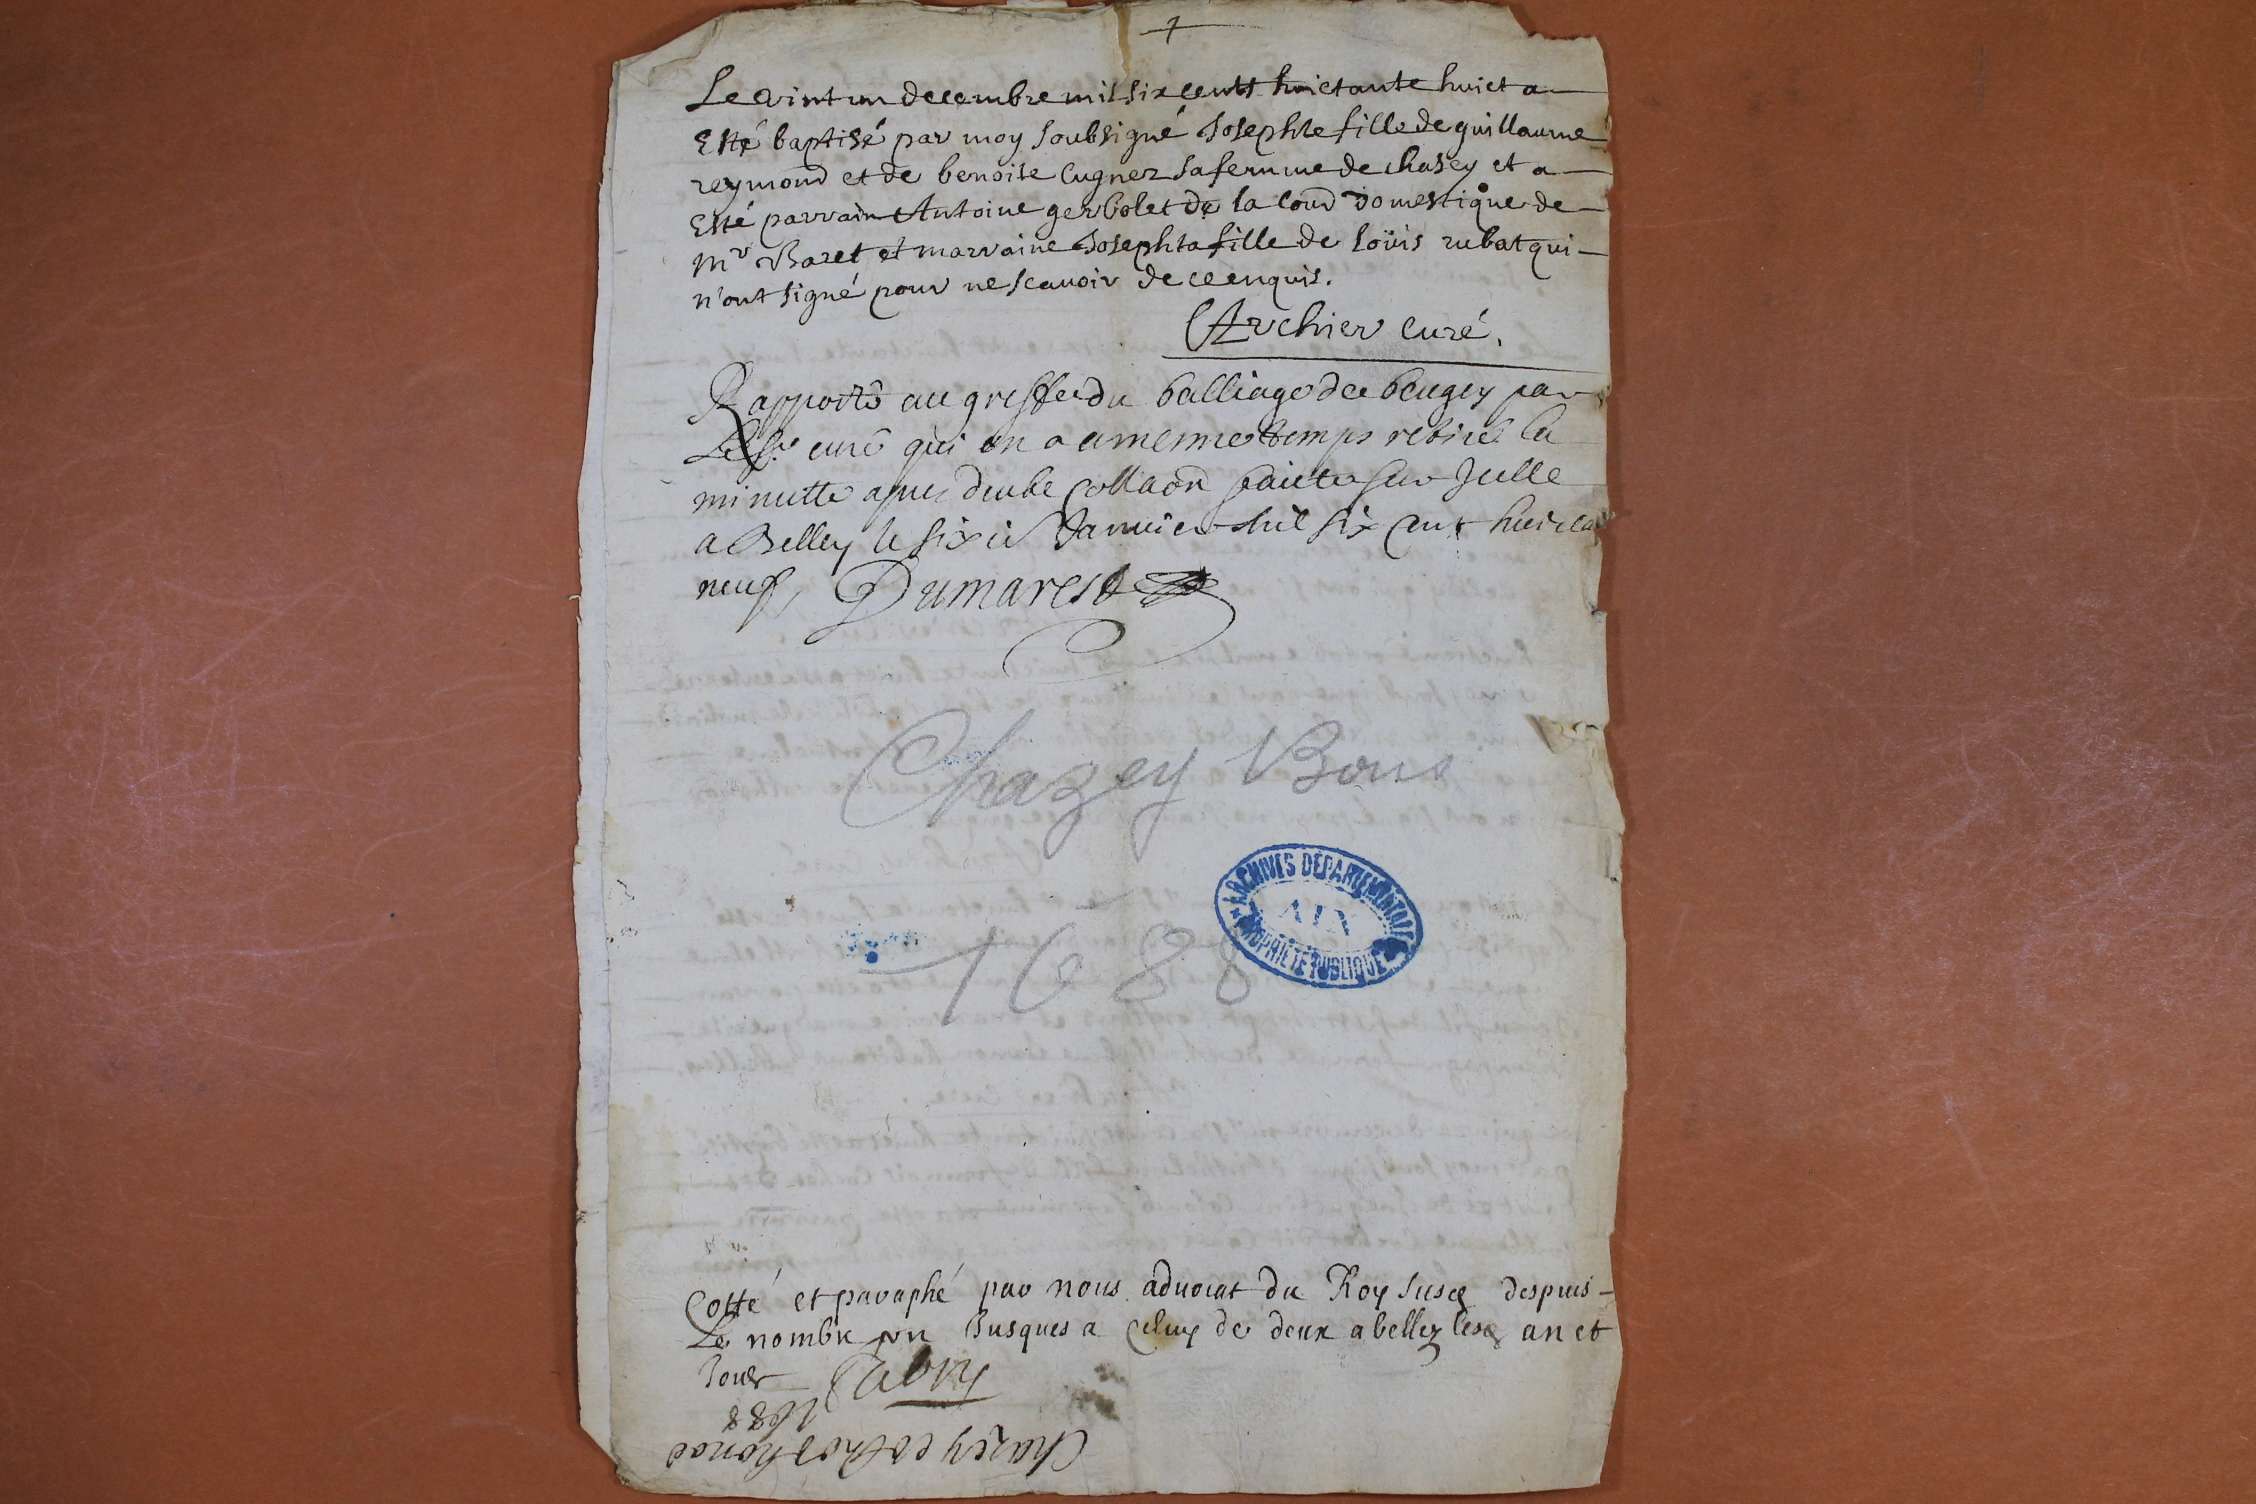 Le vint un decembre mil six cents huictante huict a
Esté baptisé par moy soubsigné Josephte fille de guillaume
reymond et de benoite Cugnez sa femme de chasey et a
Esté parrain Antoine gerbolet de la Cour domestique de
Mr Baret et marraine Josephta fille de Loüis rubat qui
n'ont signé pour ne scavoir de ce enquis.
Archier curé.
Rapporté au greffe du balliage de beugey par
Le Sr curé qui en a a meme temps retiré la
minutte apres deube Collaon faicte sur Icelle
a Belley le six Janvier mil six cent huicta
neuf, Dumarest
Chazey Bons
1688
ARCHIVES DÉPARTEMENTALES
AIN
PROPRIÉTÉ PUBLIQUE
Cotté et paraphé par nous advocat du Roy susd despuis
Le nombre un Jusques a Celuy de deux a belley lesd an et
Jour
1688
Chazey et